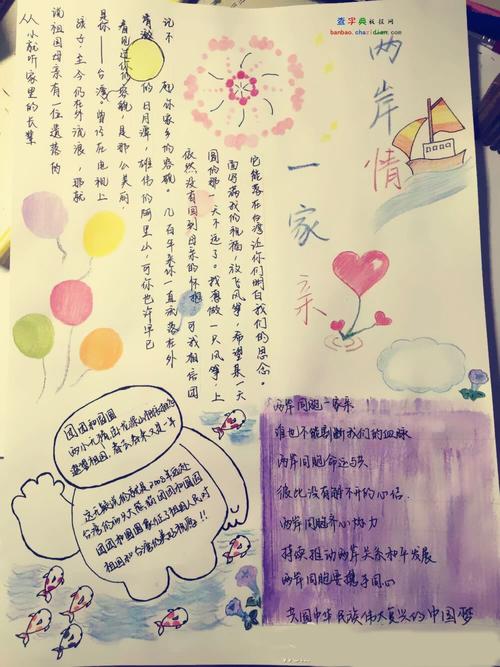 查字典板报网
banbao.chazidian.com
两岸情
一家亲
从小就听家里的长辈
说祖国母亲有一位遗落的
孩子,至今仍在外流浪,那就
是你——台湾。曾经在电视上
看见过你的容貌,是那么美丽,
清澈的日月潭,雄伟的阿里山,可你也许早已
记不起你家乡的容貌。几百年来你一直流落在外
依然没有回到母亲的怀抱。可我相信团
圆的那一天不远了。我想做一只风筝,上
面写满我们的祝福,放飞风筝,希望某一天
它能落在台湾让你们明白我们的思念。
团团和圆圆
两小无猜出
遥望祖国,春去春来又是一年
这无疑说的就是2008年远赴
台湾的大熊猫团团和圆圆
团团和圆圆象征了祖国人民对
祖国和台湾的美好祝愿!!
两岸同胞一家亲!
谁也不能割断我们的血脉
两岸同胞命运与共
彼此没有解不开的心结
两岸同胞齐心协力
持续推动两岸关系和平发展
两岸同胞要携手同心
共圆中华民族伟大复兴的中国梦